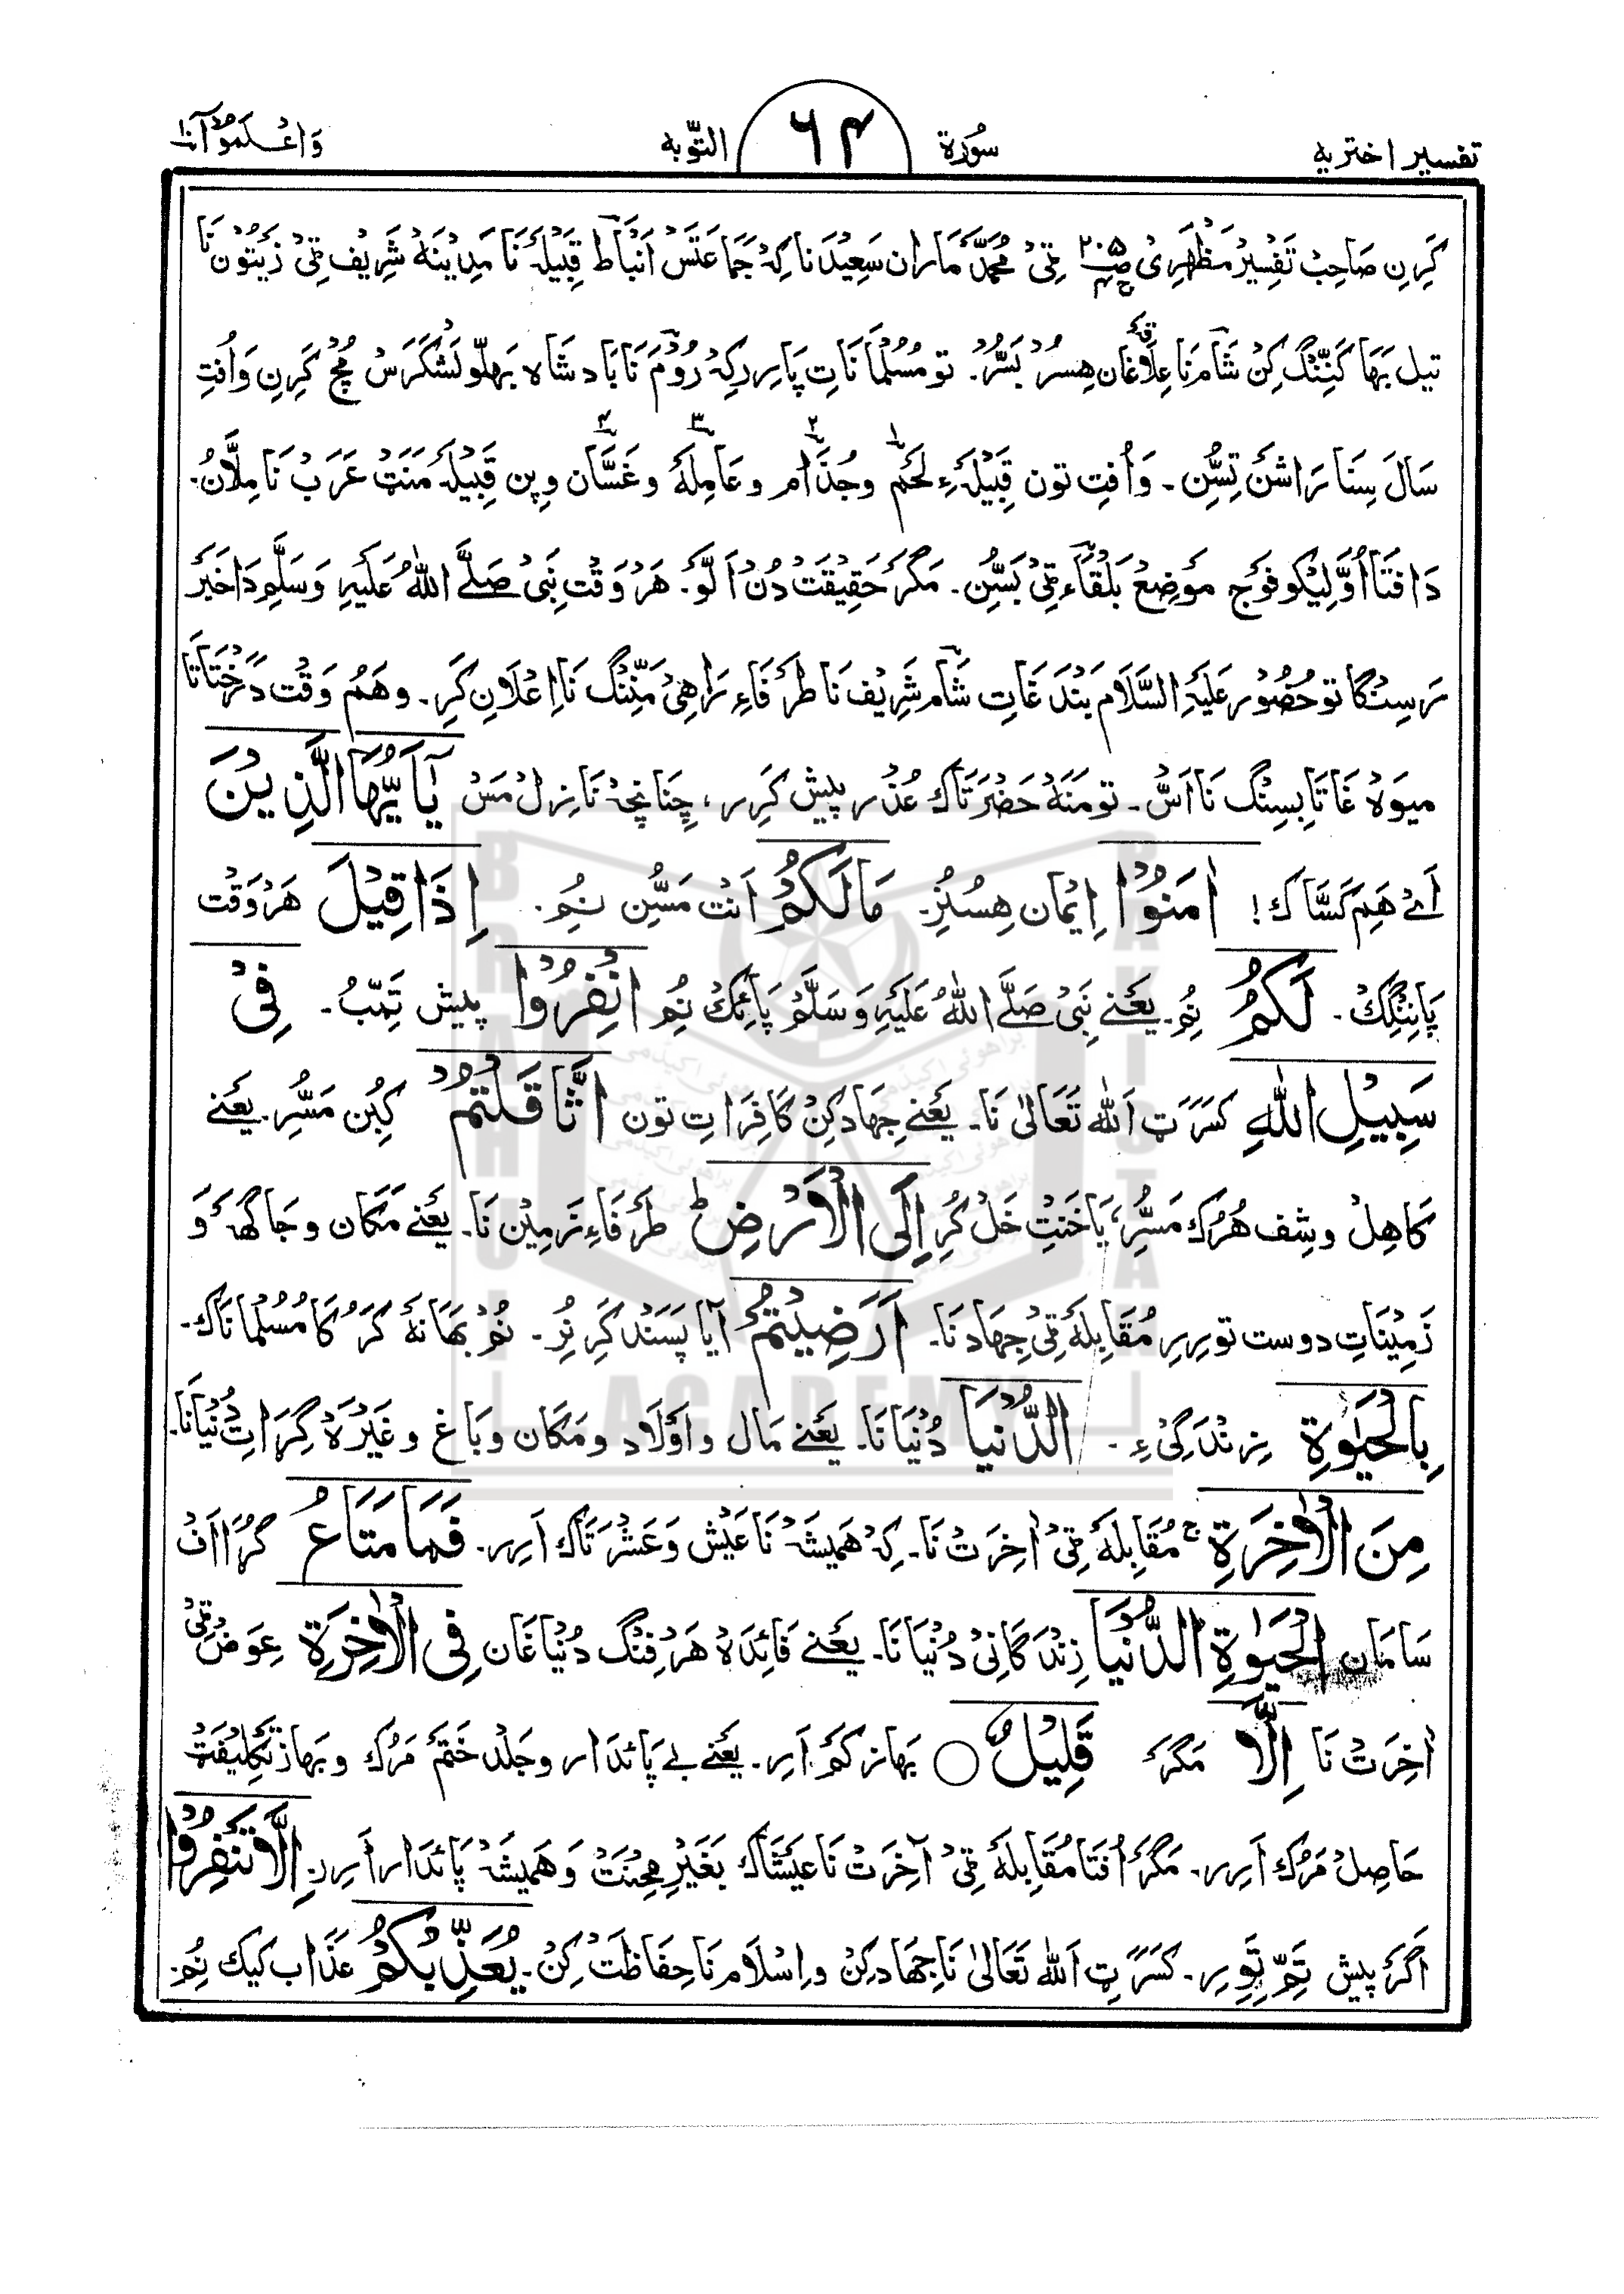 تفسیر اختریه سُورة ۶۴ التَّوبه وَاعْلَمُوْآ ۱۰
کَرِنِ صَاحِبْ تَفْسِیْرِ مَظْهَرِیْ ص۲۰۵ ج۴ ٹِیْ مُحَمَّدْ مَارَان سَعِیْدَنَا کِہْ جَمَاعَتَسْ اَنْبَاط قَبِیْلَہ نَا مَدِیْنَہْ شَرِیْف ٹِیْ زَیْتُوْن نَا
تیل بَهَا کَنِّنْگ کِنْ شَام نَا عِلَاقَہ غَان هِسُرْ بَسُّرْ۔ تو مُسْلَمَانَاتِ پَاریر کِہْ رُوْم نَا بَادشَاہ بَهلّو لَشْکَرَسْ مُچْ کَرِنِ وَ اُفْتِ
سَالَ سِنَا رَاشَنْ تِسُّنِ ۔ وَ اُفْتِ تون قَبِیْلَہءِ لَخْم ۱ وجُذَام ۲ وعَامِلَہ ۳ وغَسَّان ۴ وپِن قَبِیْلَہ مَنَتْ عَرَبْ نَا مِلَّانُ۔
دَافْتَا اَوَّلِیْکو فوَج موضِعْ بَلْقَاء ٹِیْ بَسُّنِ۔ مَگر حَقِیْقَتْ دُنْ اَلَّوْ۔ هَرْوَقْت نَبِیْ صَلَّے اللّٰهُ عَلَیْهِ وَسَلَّم دَا خَبَر
رَسِنْگا تو حُضُوْر عَلَیْهِ السَّلَام بَنْدَغَاتِ شَام شَرِیْف نَا طَرَفَاءِ رَاهِیْ مَنِّنْگ نَا اِعْلَان کَرِ۔ و هَمُ وَقْت دَرَخْتَاتَا
میوَہ غَاتَا بِسِنْگ نَا اَسُّ۔ تو مَنَہ حَضْرَتَاک عُذْر پیش کَرِر، چِنَانچِہ نَازِلْ مَسْ یٰٓاَیُّهَا الَّذِیْنَ
اَےْ هَم کَسَّاک! اٰمَنُوْا اِیْمَان هِسُنُرِ۔ مَالَکُمْ اَنْتْ مَسُّنِ نُم۔ اِذَا قِیْلَ هَرْوَقْت
پَانِنْگِکْ ۔ لَکُمُ نُمِ۔ یَعْنے نَبِیْ صَلَّے اللّٰهُ عَلَیْهِ وَسَلَّمْ پَائِکْ نُمِ انْفِرُوْا پیش تَمّبُ۔ فِیْ
سَبِیْلِ اللّٰهِ کَسَرَٹِ اَللّٰه تَعَالٰی نَا۔ یَعْنے جِهَاد کِنْ کَافِرَاتِ تون اثَّاقَلْتُمْ کُبِن مَسُّرِ۔ یَعْنے
کَاهِلْ وشِف هُرُک مَسُّرِ، یَا خَنتِ خَلْ کُرِ اِلَی الْاَرْضِ ط طَرَفَاءِ زَمِیْن نَا۔ یَعْنے مَکَان و جَاگَہ وَ
زَمِیْنَاتِ دوست توریر مُقَابِلَہ ٹِیْ جِهَاد نَا۔ اَرَضِیْتُمْ آیَا پَسَنْد کَرِنُرِ۔ نُمْ بَهَانَہ کَرُکَا مُسْلَمَانَاک۔
بِالْحَیٰوةِ زِنْدَگِیْ ءِ ۔ الدُّنْیَا دُنْیَا نَا۔ یَعْنے مَال واَوْلَاد ومَکَان وبَاغ وغَیْرَہ گِرَاتِ دُنْیَانَا۔
مِنَ الْاٰخِرَةِ ج مُقَابِلَہ ٹِیْ اٰخِرَتْ نَا۔ کِہْ هَمِیْشَہ نَا عَیْش وَعَشْرَتَاک اَرِر۔ فَمَا مَتَاعُ گُڑَا اَفْ
سَامَان الْحَیٰوةِ الدُّنْیَا زِنْدَگَانِیْ دُنْیَا نَا۔ یَعْنے فَائِدَہ هَرْفِنْگ دُنْیَا غَان فِی الْاٰخِرَةِ عِوَض ٹِیْ
اٰخِرَتْ نَا اِلَّا مَگَر قَلِیْلٌ ○ بَهَاز کَم اَرِ۔ یَعْنے بے پَائِدَار وجَلْد خَتْم مَرُک وبَهَاز تَکْلِیْفَٹْ
حَاصِلْ مَرُک اَرِر۔ مَگَر اُفْتَا مُقَابِلَہ ٹِیْ آخِرَتْ نَا عَیْشَاک بَغَیْرِ مِحْنَتْ وَهَمِیْشَہْ پَائِدَار اَرِر اِلَّا تَنْفِرُوْا
اَگَرْ پیش تَمّ تَوِیر۔ کَسَرَٹِ اَللّٰه تَعَالٰی نَا جِهَاد کِنْ واِسْلَام نَا حِفَاظَتْ کِنْ۔ یُعَذِّبْکُمْ عَذَاب کیک نُمِ۔
BRAHUI
ACADEMY
PAKISTAN